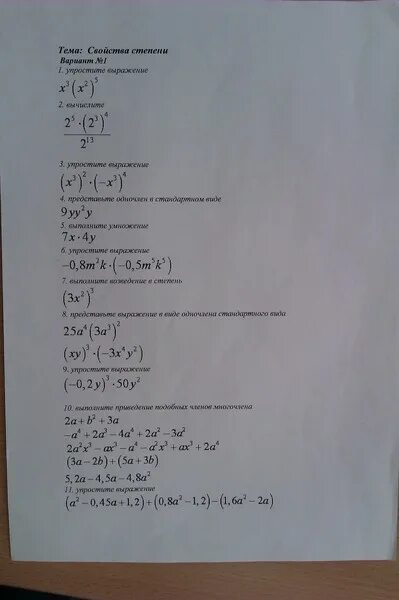 Тема: Свойства степени
Вариант №1
1. упростите выражение
x³(x²)⁵
2. вычислите
2⁵·(2³)⁴
2¹³
3. упростите выражение
(x³)²·(−x³)⁴
4. представьте одночлен в стандартном виде
9yy²y
5. выполните умножение
7x·4y
6. упростите выражение
−0,8m²k·(−0,5m⁵k⁵)
7. выполните возведение в степень
(3x²)³
8. представьте выражение в виде одночлена стандартного вида
25a⁴(3a³)²
(xy)³·(−3x⁴y²)
9. упростите выражение
(−0,2y)³·50y²
10. выполните приведение подобных членов многочлена
2a+b²+3a
−a⁴+2a³−4a⁴+2a²−3a²
2a²x³−ax³−a⁴−a²x³+ax³+2a⁴
(3a−2b)+(5a+3b)
5,2a−4,5a−4,8a²
11. упростите выражение
(a²−0,45a+1,2)+(0,8a²−1,2)−(1,6a²−2a)